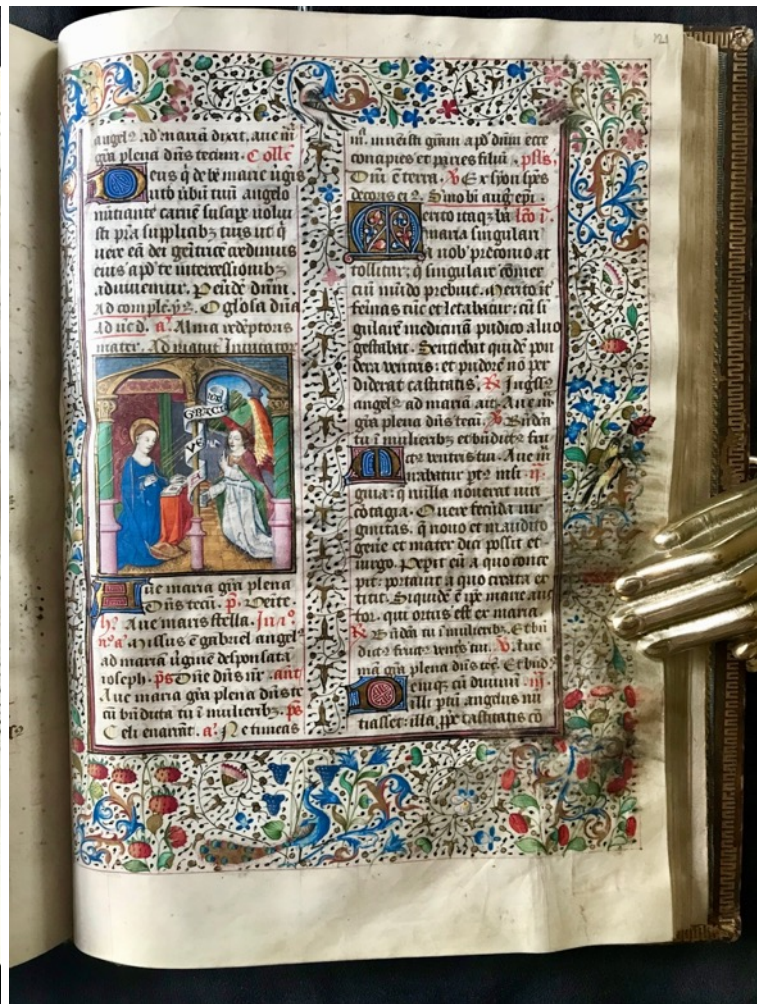 angelꝰ ad mariā dixit. aue mͬ
gr̄a plena dn̄s tecum. Collc̄
Deus q̇ de bt̄e marie ūgīs
utō ūbū tuū angelo
nūtiante carnē suscipe̅ volui
sti p̄sta supplicibꝫ tuis ut q̇
uere eā dei genitricē credimus
eius apd̓ te intercessionibꝫ
adiuuemur. Per eūdē dnm̄.
Ad comple. yꝰ. O glōsa dn̄a
ad nc̄ d. aͣ. Alma redēptoris
mater. Ad matut̄ Inuitatoꝝ
GRACIA
AVE
Aue maria gr̄a plena
Dn̄s tecū. p̄. Venite.
hꝰ. Aue maris stella. In iͦ.
nͦ. aͣ. Missus ē gabriel angelꝰ
ad mariā ūginē desponsatā
ioseph. pͦs Dn̄e dn̄s nr̄. ant̄
Aue maria gr̄a plena dn̄s te
cū bn̄dicta tu ī mulieribꝫ. pͦs
Celi enarrāt. aͣ. Ne timeas
mͣ. inuenisti gr̄am apd̓ dn̄m ecce
concipies et paries filiū. psͦs.
Dn̄i ē terra. ℣ Ex syon spēs
decoris eiꝰ. Sermo bi augͦ epi.
Merito itaqꝫ bā lc̄o .i.
maria singulari
a nob̓ preconio at
tollitur: q̇ singulare cōmer
ciū mūdo prebuit. Merito īt̓
feminas tūc et letabatur: cū si
gularē medicinā pudico aluo
gestabat. Sentiebat quidē pon
dera ventris: et pudorē nō per
diderat castitatis. ℟ Ingssꝰ
angelꝰ ad mariā ait. Aue mͣ
gr̄a plena dn̄s tecū. ℣. Bn̄dc̄a
tu ī mulieribꝫ et bn̄dictꝰ fruc
ctꝰ ventris tui. Aue mͣ
Mirabatur pt̓ꝫ mst̄. ii.
guia: q̇ nulla nouerat uiri
cōtagia. O uere fecūda uir
ginitas. q̄ nouo et inaudito
gen̄e et mater dici possit et
uirgo. Pepit eū a quo conce
pit: portauit a quo creata ex
titit. Siquidē ē ip̄e marie auc
tor. qui ortus est ex maria
℟ Bn̄dc̄a tu ī mulieribꝫ. Et bn̄
dictꝰ fructꝰ vent̓s tui. ℣. Aue
mͣ gr̄a plena dn̄s tec̄. Et bn̄dꝰ
Deniqꝫ cū diuinū .iii.
illi ptū angelus nū
tiasset: illa ꝓpt̓ castitatis cō